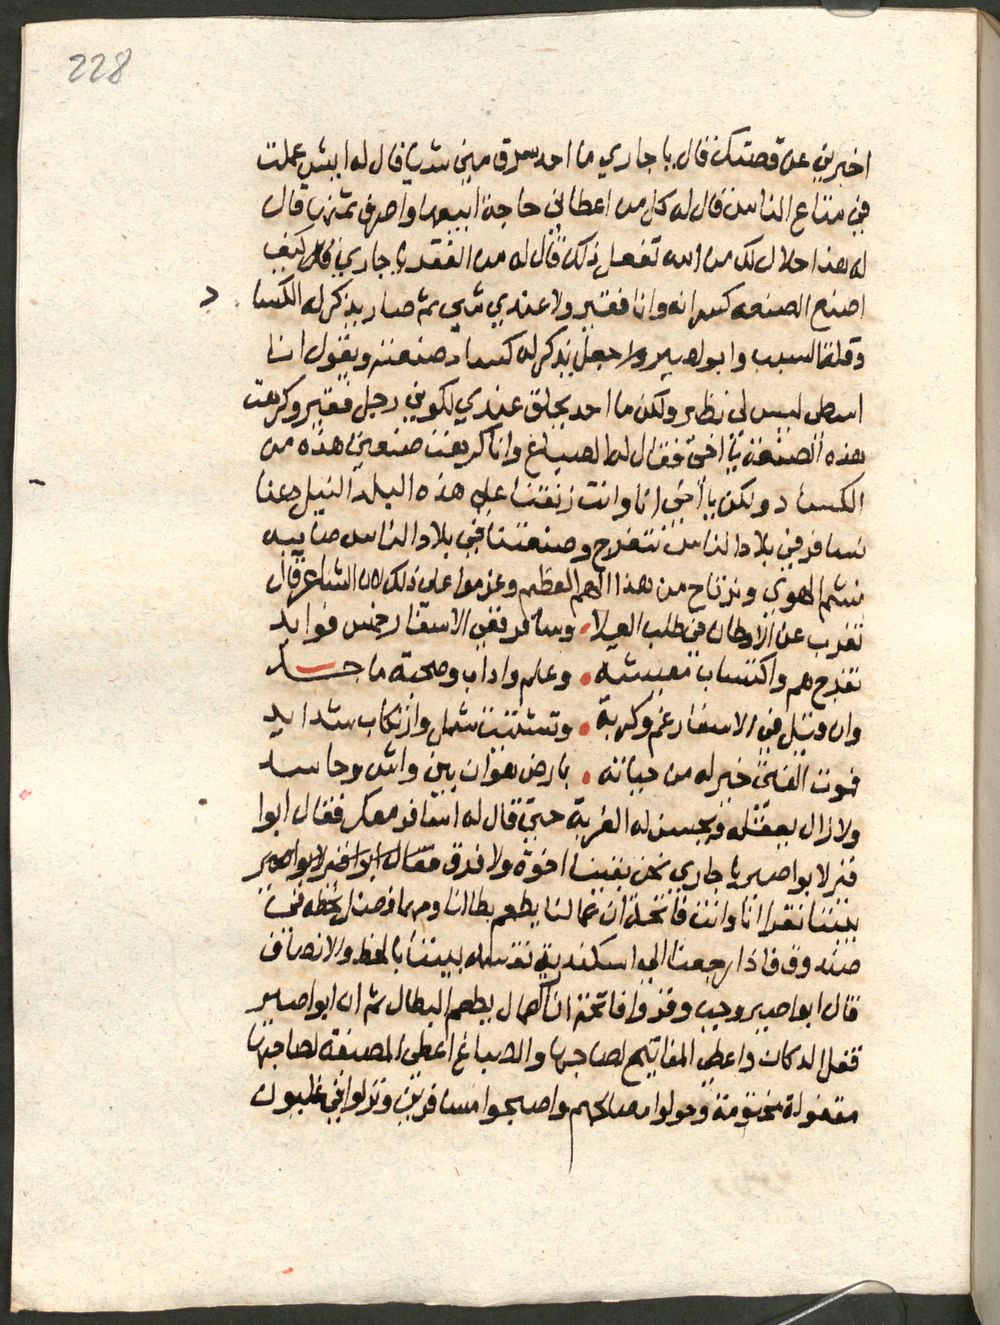 228
اخبريني عن قصتك فقال يا جاري ما احد سرق مني شيا قال له ايش عملت
في متاع الناس قال له كل من اعطاني حاجة ابيعها واصرف ثمنها قال
له هذا حلال لك من الله تفعل ذلك قال له من الفقر يا جاري قال كيف
اصنع الصنعه كسدانه وانا فقير ولا عندي شي ثم صار يذكر له الكسا د
وقلة السبب وابو صير جعل يذكر له كساد صنعته ويقول انا
اسطى ليس لي نظير ولكن ما احد يحلق عندي لكوني رجل فقير وكرهت
هذه الصنعة يا اخي فقال له الصباغ وانا كرهت صنعتي هذه من
الكساد ولكن يا اخي انا وانت زنقتنا على هذه البلد النيل دعنا
نسافر في بلاد الناس نتفرج وصنعتنا في بلاد الناس صايبه
نشم الهوى ونرتاح من هذا الهم العظيم وعزموا على ذلك لان الشاعر قال
تغرب عن الاوطان في طلب العلا وسافر ففي الاسفار خمس فوايد
تفرج هم واكتساب معيشه وعلم واداب وصحبة ماجد
وان قيل في الاسفار غم وكربة وتشتت شمل وارتكاب شدايد
فموت الفتى خير له من حياته بارض هوان بين واش وحاسد
ولا زال يعقله ويحسن له الغربة حتى قال له اسافر معك فقال ابوا
قير لابو اصير يا جاري نحن بقينا اخوة ولا فرق مقاله ابو اقير لابو اصير
بيننا نقرا انا وانت فاتحة ان عمالنا يطعم بطالنا ومهما فضل نحطه تحت
صندوق فاذا رجعنا الى اسكندرية نقسمه بيننا بالحظ والانصاف
قال ابو اصير وجب وقروا فاتحة ان العمال يطعم البطال ثم ان ابو اصير
قفل الدكان واعطى المفاتيح لصاحبها والصباغ اعطى المصبغة لصاحبها
مقفولة مختومة وحولوا مصالحهم واصبحوا مسافرين ونزلوا في غليون